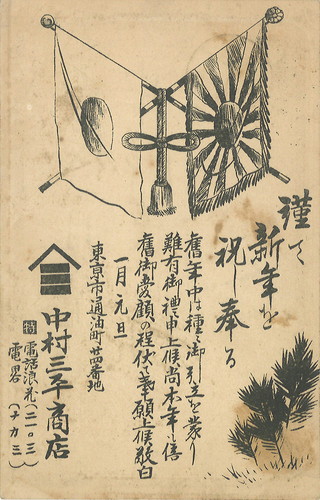 謹て
新年を
祝し奉る
舊年中は種々御引立を蒙り
難有御禮申上候尚本年も倍
舊御愛顧の程伏て奉願上候敬白
一月元旦
東京市通油町廿四番地
中村三平商店
特 電話浪花(二一〇三)
電畧(ナカミ)